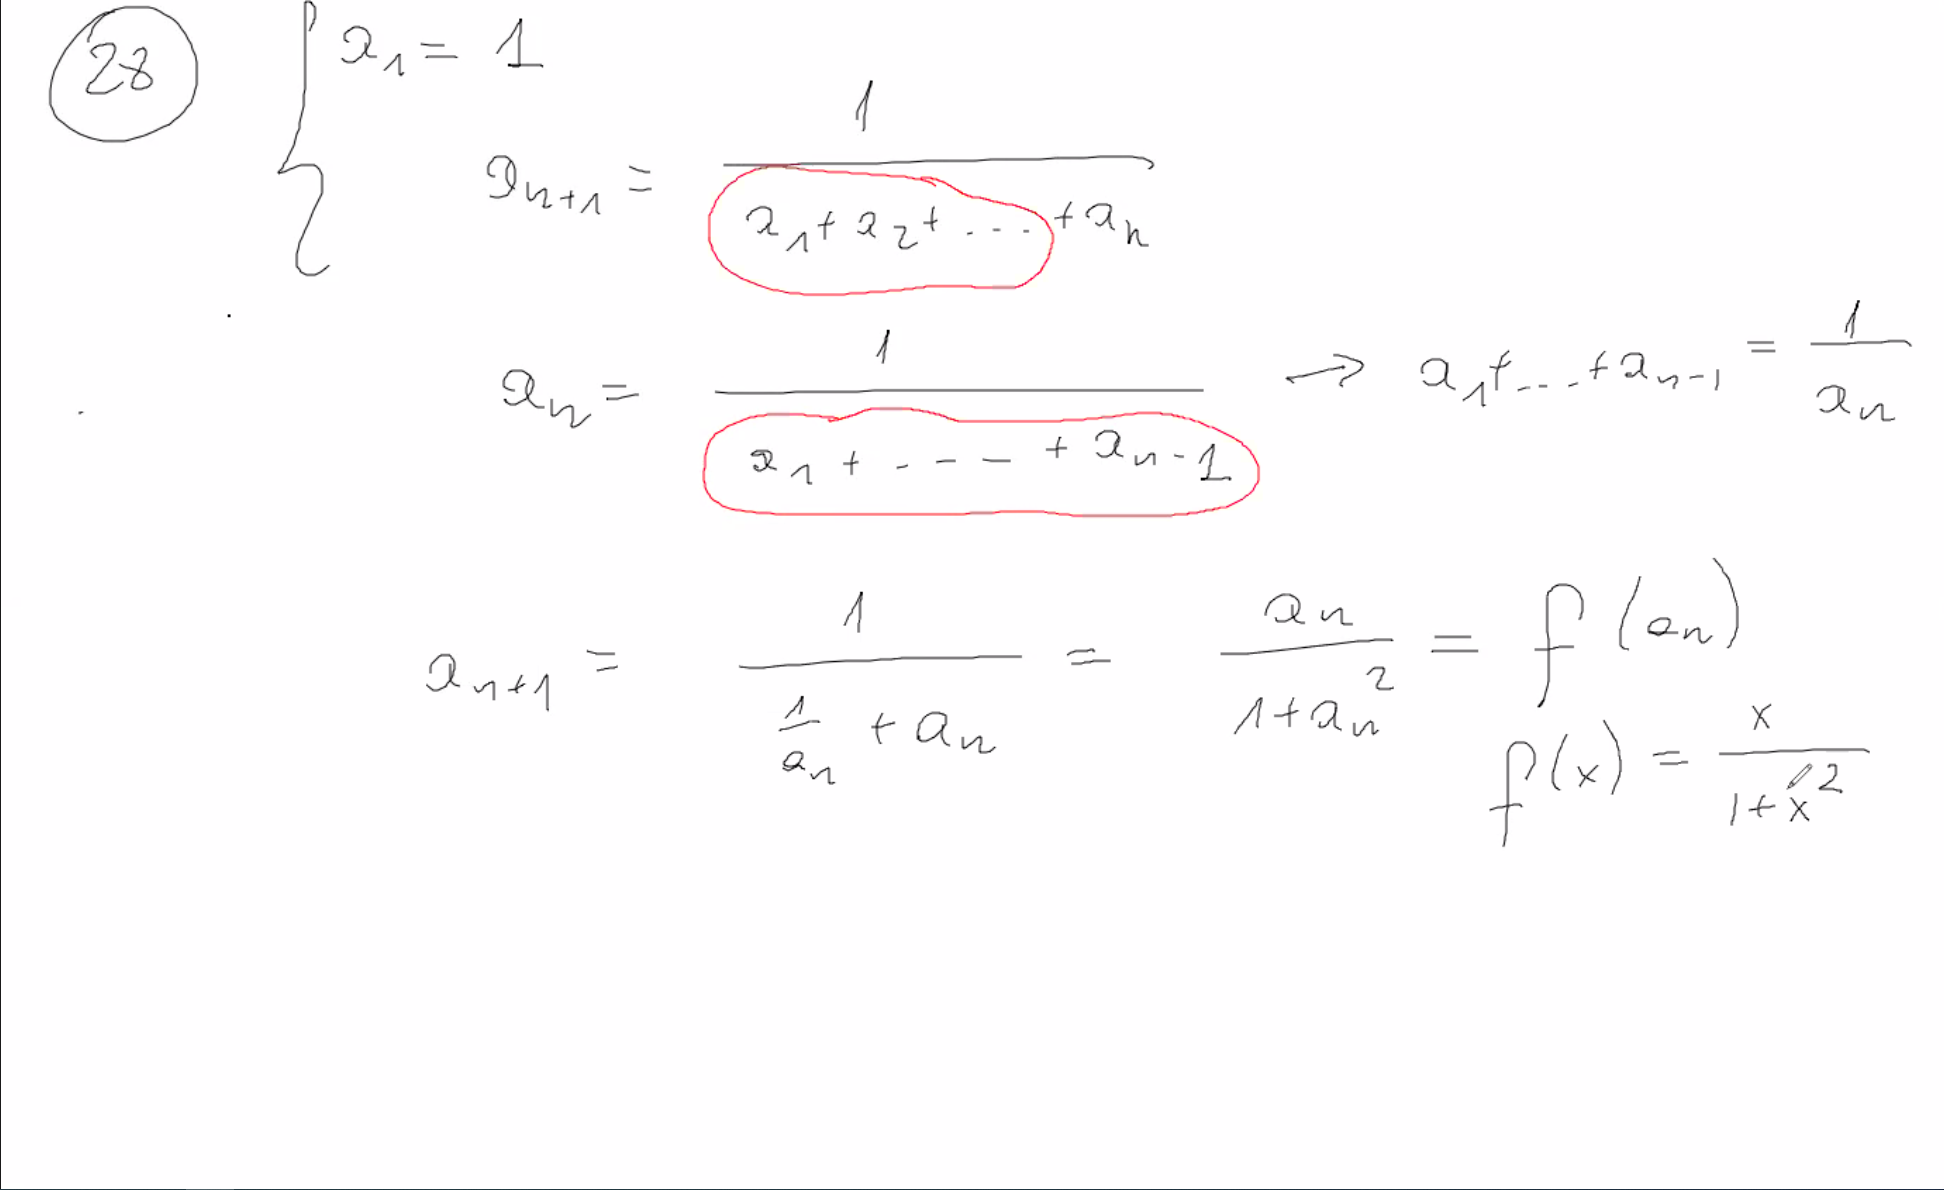 28 { a₁ = 1
aₙ₊₁ = 1 / (a₁ + a₂ + ... + aₙ)
aₙ = 1 / (a₁ + - - - + aₙ₋₁) → a₁ + ... + aₙ₋₁ = 1 / aₙ
aₙ₊₁ = 1 / (1/aₙ + aₙ) = aₙ / (1 + aₙ²) = f(aₙ)
f(x) = x / (1 + x²)